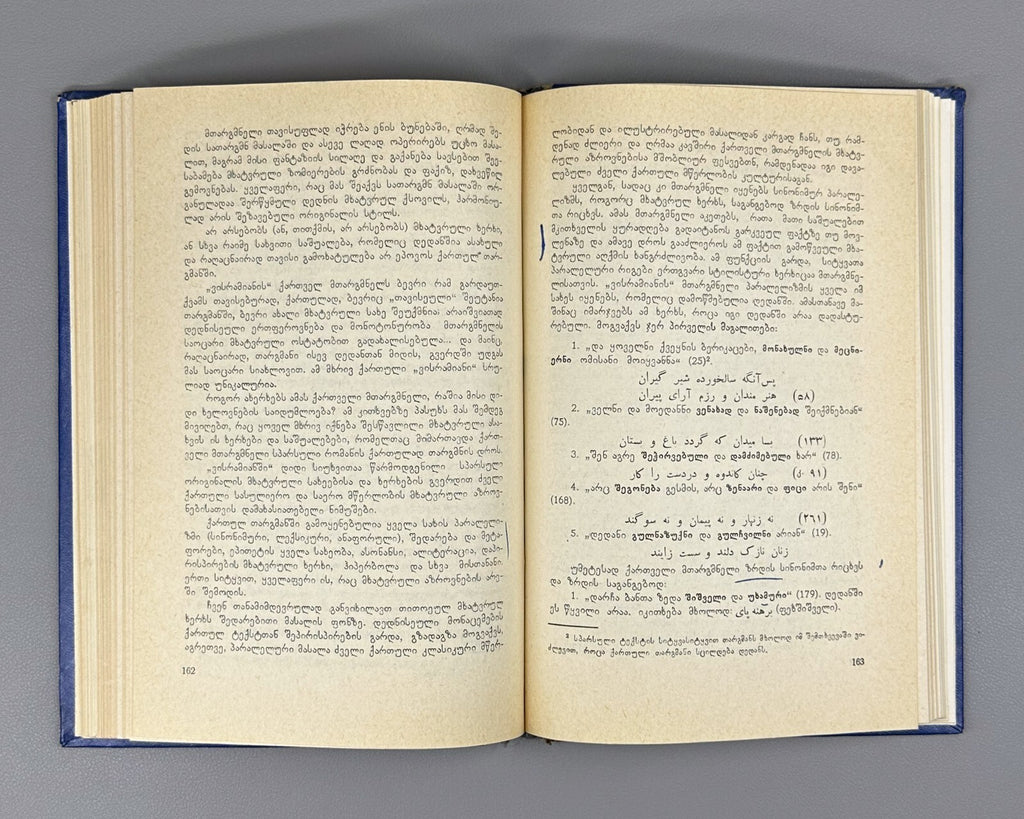 მთარგმნელი თავისუფლად იჭრება ენის ბუნებაში, ღრმად შე-
დის სათარგმნ მასალაში და ასევე ლაღად ოპერირებს უცხო მასა-
ლით, მაგრამ მისი ფანტაზიის სილაღე და გაქანება სავსებით შეე-
საბამება მხატვრული ზომიერების გრძნობას და ფაქიზ, დახვეწილ
გემოვნებას. ყველაფერი, რაც მას შეაქვს სათარგმნ მასალაში ორ-
განულადაა შერწყმული დედნის მხატვრულ ქსოვილს, ჰარმონიუ-
ლად არის შეზავებული ორიგინალის სტილს.
არ არსებობს (ან, თითქმის, არ არსებობს) მხატვრული ხერხი,
ან სხვა რაიმე სახვითი საშუალება, რომელიც დედანშია ასახული
და რაღაცნაირად თავისი გამოხატულება არ ეპოვოს ქართულ თარ-
გმანში.
„ვისრამიანის“ ქართველ მთარგმნელს ბევრი რამ გარდაუთ-
ქვამს თავისებურად, ქართულად, ბევრიც „თავისეული“ შეუტანია
თარგმანში, ბევრი ახალი მხატვრული სახე შეუქმნია; არაიშვიათად
დედნისეული ერთფეროვნება და მონოტონურობა მთარგმნელის
საოცარი მხატვრული ოსტატობით გადახალისებულა... და მაინც,
რაღაცნაირად, თარგმანი ისევ დედანთან მიდის, გვერდში უდგას
მას საოცარი სიახლოვით. ამ მხრივ ქართული „ვისრამიანი“ სრუ-
ლიად უნიკალურია.
როგორ ახერხებს ამას ქართველი მთარგმნელი, რაშია მისი დი-
დი ხელოვნების საიდუმლოება? ამ კითხვებზე პასუხს მას შემდეგ
მივიღებთ, რაც ყოველ მხრივ იქნება შესწავლილი მხატვრული ასა-
ხვის ის ხერხები და საშუალებები, რომელთაც მიმართავდა ქართ-
ველი მთარგმნელი სპარსული რომანის ქართულად თარგმნის დროს.
„ვისრამიანში“ დიდი სიუხვითაა წარმოდგენილი სპარსული
ორიგინალის მხატვრული სახეებისა და ხერხების გვერდით ძველი
ქართული სასულიერო და საერო მწერლობის მხატვრული აზროვ-
ნებისათვის დამახასიათებელი ნიმუშები.
ქართულ თარგმანში გამოყენებულია ყველა სახის პარალელი-
ზმი (სინონიმური, ლექსიკური, ანაფორული), შედარება და მეტა-
ფორები, ეპითეტის ყველა სახეობა, ასონანსი, ალიტერაცია, დაპი-
რისპირების მხატვრული ხერხი, ჰიპერბოლა და სხვა მისთანანი.
ერთი სიტყვით, ყველაფერი ის, რაც მხატვრული აზროვნების არე-
ში შემოდის.
ჩვენ თანამიმდევრულად განვიხილავთ თითოეულ მხატვრულ
ხერხს შედარებითი მასალის ფონზე. დედნისეული მონაცემების
ქართულ ტექსტთან შეპირისპირების გარდა, გზადაგზა მოგვაქვს,
აგრეთვე, პარალელური მასალა ძველი ქართული კლასიკური მწერ-
162
ლობიდან და ილუსტრირებული მასალიდან კარგად ჩანს, თუ რამ-
დენად ძლიერი და ღრმაა კავშირი ქართველი მთარგმნელის მხატვ-
რული აზროვნებისა მშობლიურ ფესვებთან, რამდენადაა იგი დავა-
ლებული ძველი ქართული მწერლობის კულტურისაგან.
ყველგან, სადაც კი მთარგმნელი იყენებს სინონიმურ პარალე-
ლიზმს, როგორც მხატვრულ ხერხს, საგანგებოდ ზრდის სინონიმ-
თა რიცხვს. ამას მთარგმნელი აკეთებს, რათა მათი საშუალებით
მკითხველის ყურადღება გადაიტანოს გარკვეულ ფაქტზე თუ მოვ-
ლენაზე და ამავე დროს გააძლიეროს ამ ფაქტით გამოწვეული მხა-
ტვრული აღქმის ხანგრძლივობა. ამ ფუნქციის გარდა, სიტყვათა
პარალელური რიგები ერთგვარი სტილისტური ხერხიცაა მთარგმნე-
ლისათვის. „ვისრამიანის“ მთარგმნელი პარალელიზმის ყველა იმ
სახეს იყენებს, რომელიც დამოწმებულია დედანში. ამასთანავე მა-
შინაც იმარჯვებს ამ ხერხს, როცა იგი დედანში არაა დადასტუ-
რებული. მოგვაქვს ჯერ პირველის მაგალითები:
1. „და ყოველნი ქვეყნის ბერიკაცები, მონახულნი და მეცნი-
ერნი ომისანი მოიყვანნა“ (25)².
پس آنگه سالخورده شیر گیران
هنر مندان و رزم آرای پیران (٥٨)
2. „ველნი და მოედანნი ვენახად და ნაშენებად შეიქმნებიან“
(75).
بسا میدان که گردد باغ و بستان (١٣٣)
3. „შენ აგრე შეჭირვებული და დამძიმებული ხარ“ (78).
چنان کاندوه و دردست را کار (٩١ ·d)
4. „არც შეგონება გესმის, არც ზენაარი და ფიცი არის შენი“
(168).
نه زنهار و نه پیمان و نه سوگند (٢٦١)
5. „დედანი გულნაზუქნი და გულჩვილნი არიან“ (19).
زنان نازک دلند و سست زایند
უმეტესად ქართველი მთარგმნელი ზრდის სინონიმთა რიცხვს
და ზრდის საგანგებოდ:
1. „დარჩა ბანთა ზედა შიშველი და უხამური“ (179). დედანში
ეს წყვილი არაა. იკითხება მხოლოდ: برهنه پای (ფეხშიშველი).
² სპარსული ტექსტის სიტყვასიტყვით თარგმანს მხოლოდ იმ შემთხვევაში ვი-
ძლევით, როცა ქართული თარგმანი სცილდება დედანს.
163